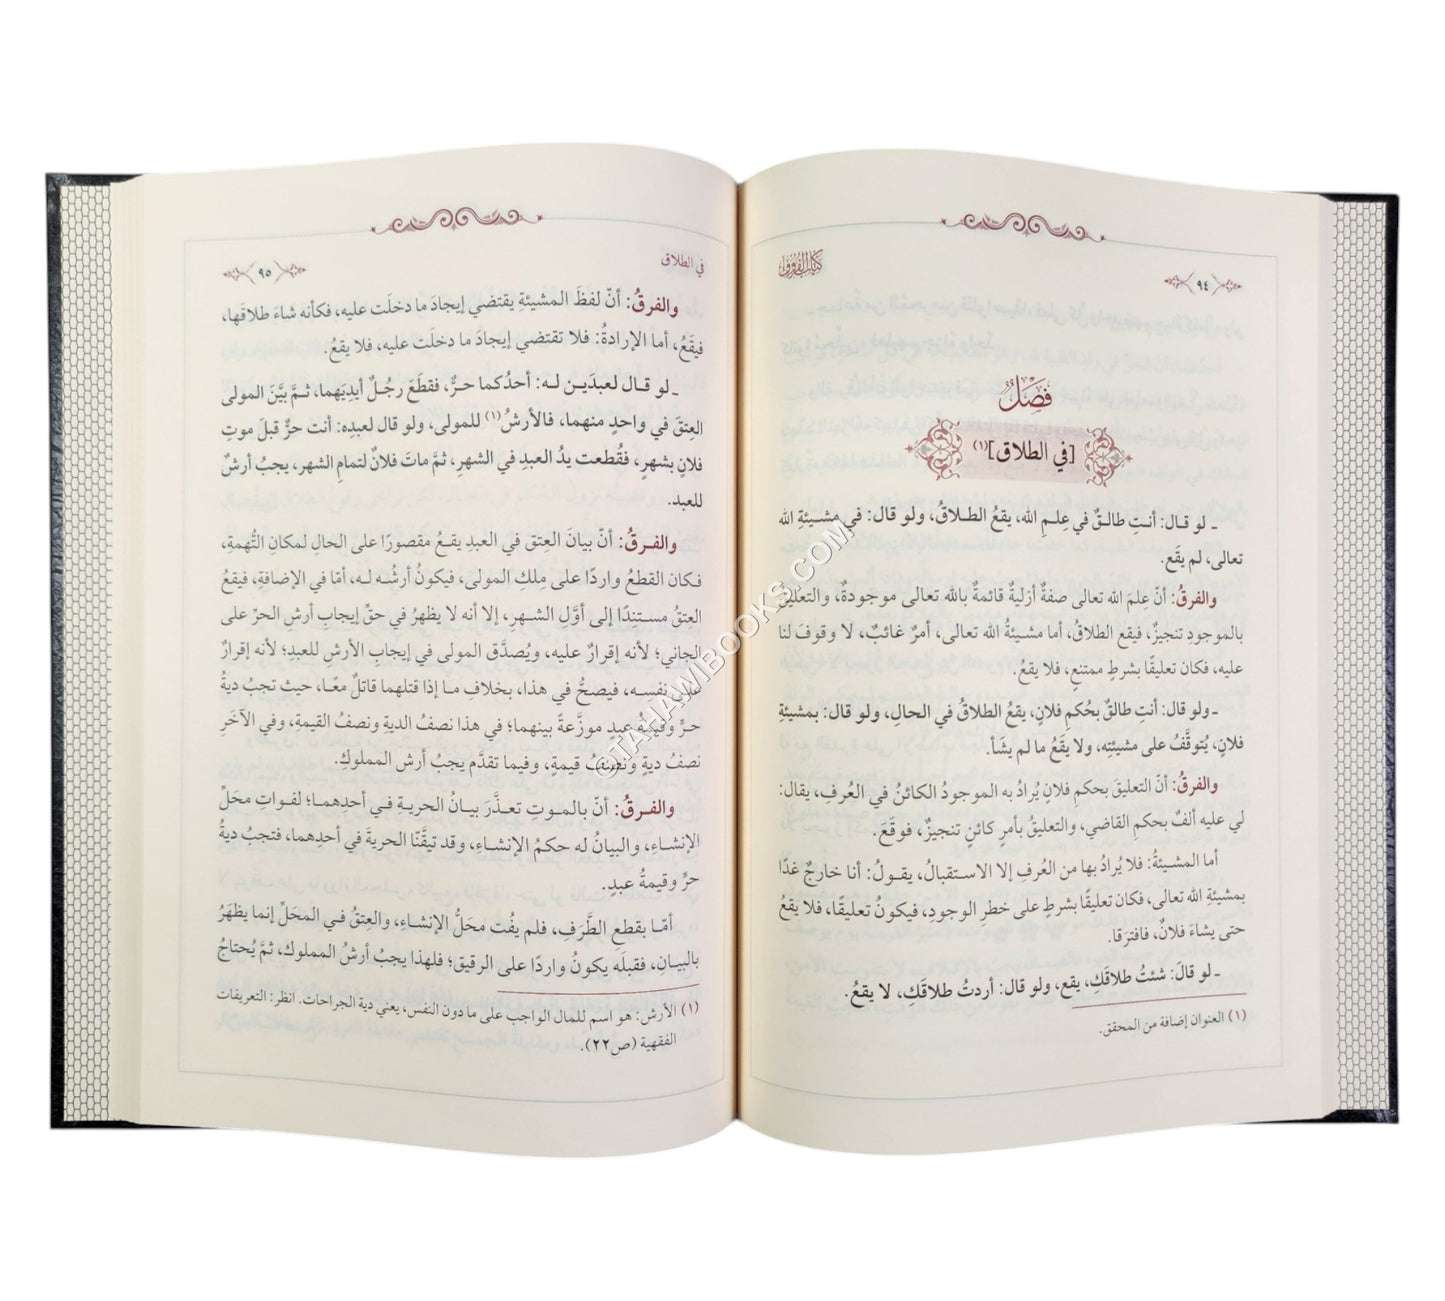 ٩٤
كتاب الفروق
فصلٌ
[في الطلاق](١)
ـ لو قال: أنتِ طالقٌ في عِلمِ الله، يقعُ الطلاقُ، ولو قال: في مشيئةِ الله
تعالى، لم يقَع.
والفرقُ: أنّ عِلمَ الله تعالى صفةٌ أزليةٌ قائمةٌ بالله تعالى موجودةٌ، والتعليق
بالموجودِ تنجيزٌ، فيقع الطلاقُ، أما مشيئةُ الله تعالى، أمرٌ غائبٌ، لا وقوفَ لنا
عليه، فكان تعليقًا بشرطٍ ممتنعٍ، فلا يقعُ.
ـ ولو قال: أنتِ طالقٌ بحُكمِ فلان، يقعُ الطلاقُ في الحالِ، ولو قال: بمشيئةِ
فلان، يُتوقَّفُ على مشيئتِه، ولا يقَعُ ما لم يشَأ.
والفرقُ: أنّ التعليقَ بحكمِ فلانٍ يُرادُ به الموجودُ الكائنُ في العُرفِ، يقال:
لي عليه ألفٌ بحكمِ القاضي، والتعليقُ بأمرٍ كائنٍ تنجيزٌ، فوقَعَ.
أما المشيئةُ: فلا يُرادُ بها من العُرفِ إلا الاستقبالُ، يقولُ: أنا خارجٌ غدًا
بمشيئةِ الله تعالى، فكان تعليقًا بشرطٍ على خطرِ الوجودِ، فيكونُ تعليقًا، فلا يقعُ
حتى يشاءَ فلانٌ، فافترَقا.
ـ لو قالَ: شئتُ طلاقَكِ، يقع، ولو قال: أردتُ طلاقَكِ، لا يقعُ.
(١) العنوان إضافة من المحقق.
في الطلاق
٩٥
والفرقُ: أنّ لفظَ المشيئةِ يقتضي إيجادَ ما دخلَت عليه، فكأنه شاءَ طلاقَها،
فيقَعُ، أما الإرادةُ: فلا تقتضي إيجادَ ما دخلَت عليه، فلا يقعُ.
ـ لو قال لعبدَين له: أحدُكما حرٌّ، فقطَعَ رجُلٌ أيديَهما، ثمَّ بيَّنَ المولى
العِتقَ في واحدٍ منهما، فالأرشُ(١) للمولى، ولو قال لعبدِه: أنت حرٌّ قبلَ موتِ
فلانٍ بشهرٍ، فقُطعت يدُ العبدِ في الشهرِ، ثمَّ ماتَ فلانٌ لتمامِ الشهر، يجبُ أرشٌ
للعبد.
والفرقُ: أنّ بيانَ العِتق في العبدِ يقعُ مقصورًا على الحالِ لمكانِ التُّهمةِ،
فكان القطعُ واردًا على مِلكِ المولى، فيكونُ أرشُه له، أمّا في الإضافةِ، فيقعُ
العِتقُ مستنِدًا إلى أوَّلِ الشهرِ، إلا أنه لا يظهرُ في حقِّ إيجابِ أرشِ الحرِّ على
الجاني؛ لأنه إقرارٌ عليه، ويُصدَّق المولى في إيجابِ الأرشِ للعبدِ؛ لأنه إقرارٌ
على نفسه، فيصحُّ في هذا، بخلافِ ما إذا قتلهما قاتلٌ معًا، حيث تجبُ ديةُ
حرٍّ وقيمةُ عبدٍ موزَّعةً بينهما؛ في هذا نصفُ الديةِ ونصفُ القيمةِ، وفي الآخَر
نصفُ ديةٍ ونصفُ قيمةٍ، وفيما تقدَّم يجبُ أرش المملوكِ.
والفرقُ: أنّ بالموتِ تعذَّرَ بيانُ الحريةِ في أحدِهما؛ لفواتِ محَلِّ
الإنشاءِ، والبيانُ له حكمُ الإنشاءِ، وقد تيقَّنّا الحريةَ في أحدِهما، فتجبُ ديةُ
حرٍّ وقيمةُ عبدٍ.
أمّا بقطعِ الطَّرَفِ، فلم يفُت محَلُّ الإنشاءِ، والعِتقُ في المحَلِّ إنما يظهَرُ
بالبيانِ، فقبلَه يكونُ واردًا على الرقيق؛ فلهذا يجبُ أرشُ المملوك، ثمَّ يُحتاجُ
(١) الأرش: هو اسم للمال الواجب على ما دون النفس، يعني دية الجراحات. انظر: التعريفات
الفقهية (ص٢٢).
©TAHAWIBOOKS.COM